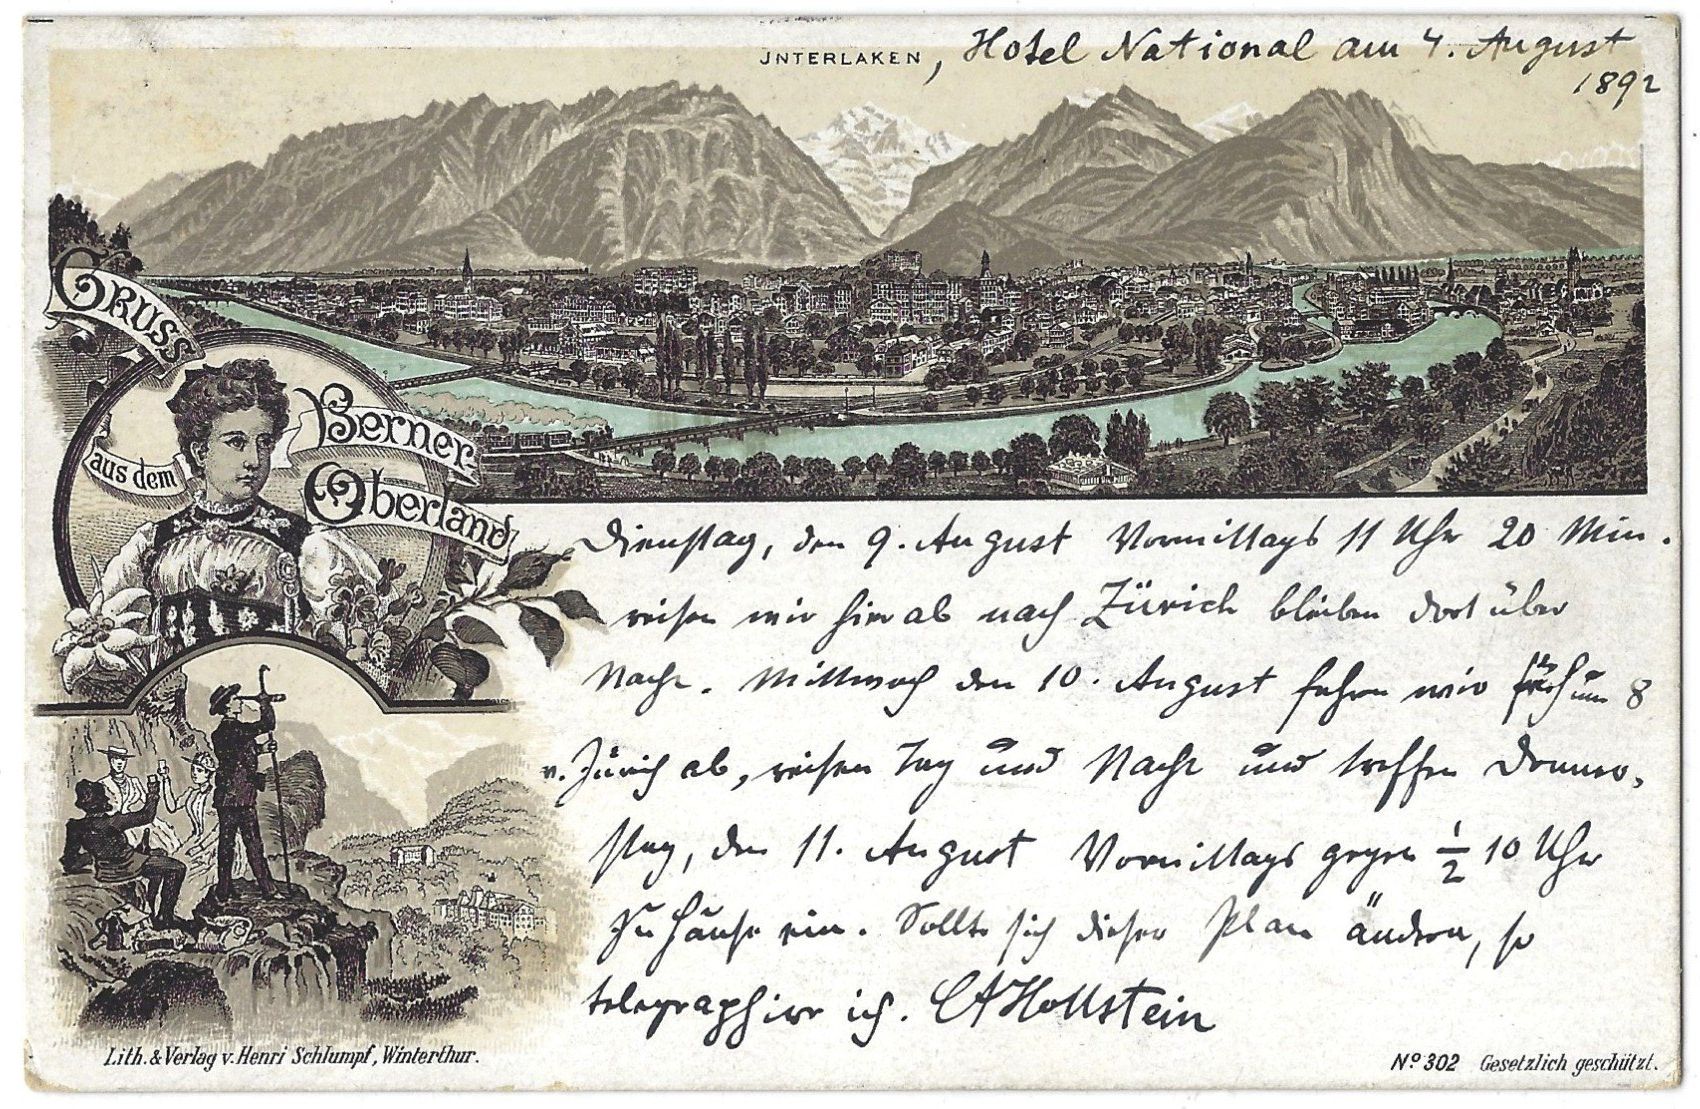 JNTERLAKEN, Hotel National am 4. August
1892
Gruss
aus dem
Berner-
Oberland
Dienstag, den 9. August Vormittags 11 Uhr 20 Min.
reisen wir hier ab nach Zürich bleiben dort über
Nacht. Mittwoch den 10. August fahren wir früh um 8
v. Zürich ab, reisen Tag und Nacht und treffen Donners-
stag, den 11. August Vormittags gegen ½ 10 Uhr
zu Hause ein. Sollte sich dieser Plan ändern, so
telegraphire ich. CAHollstein
Lith. & Verlag v. Henri Schlumpf, Winterthur.
Nº 302 Gesetzlich geschützt.